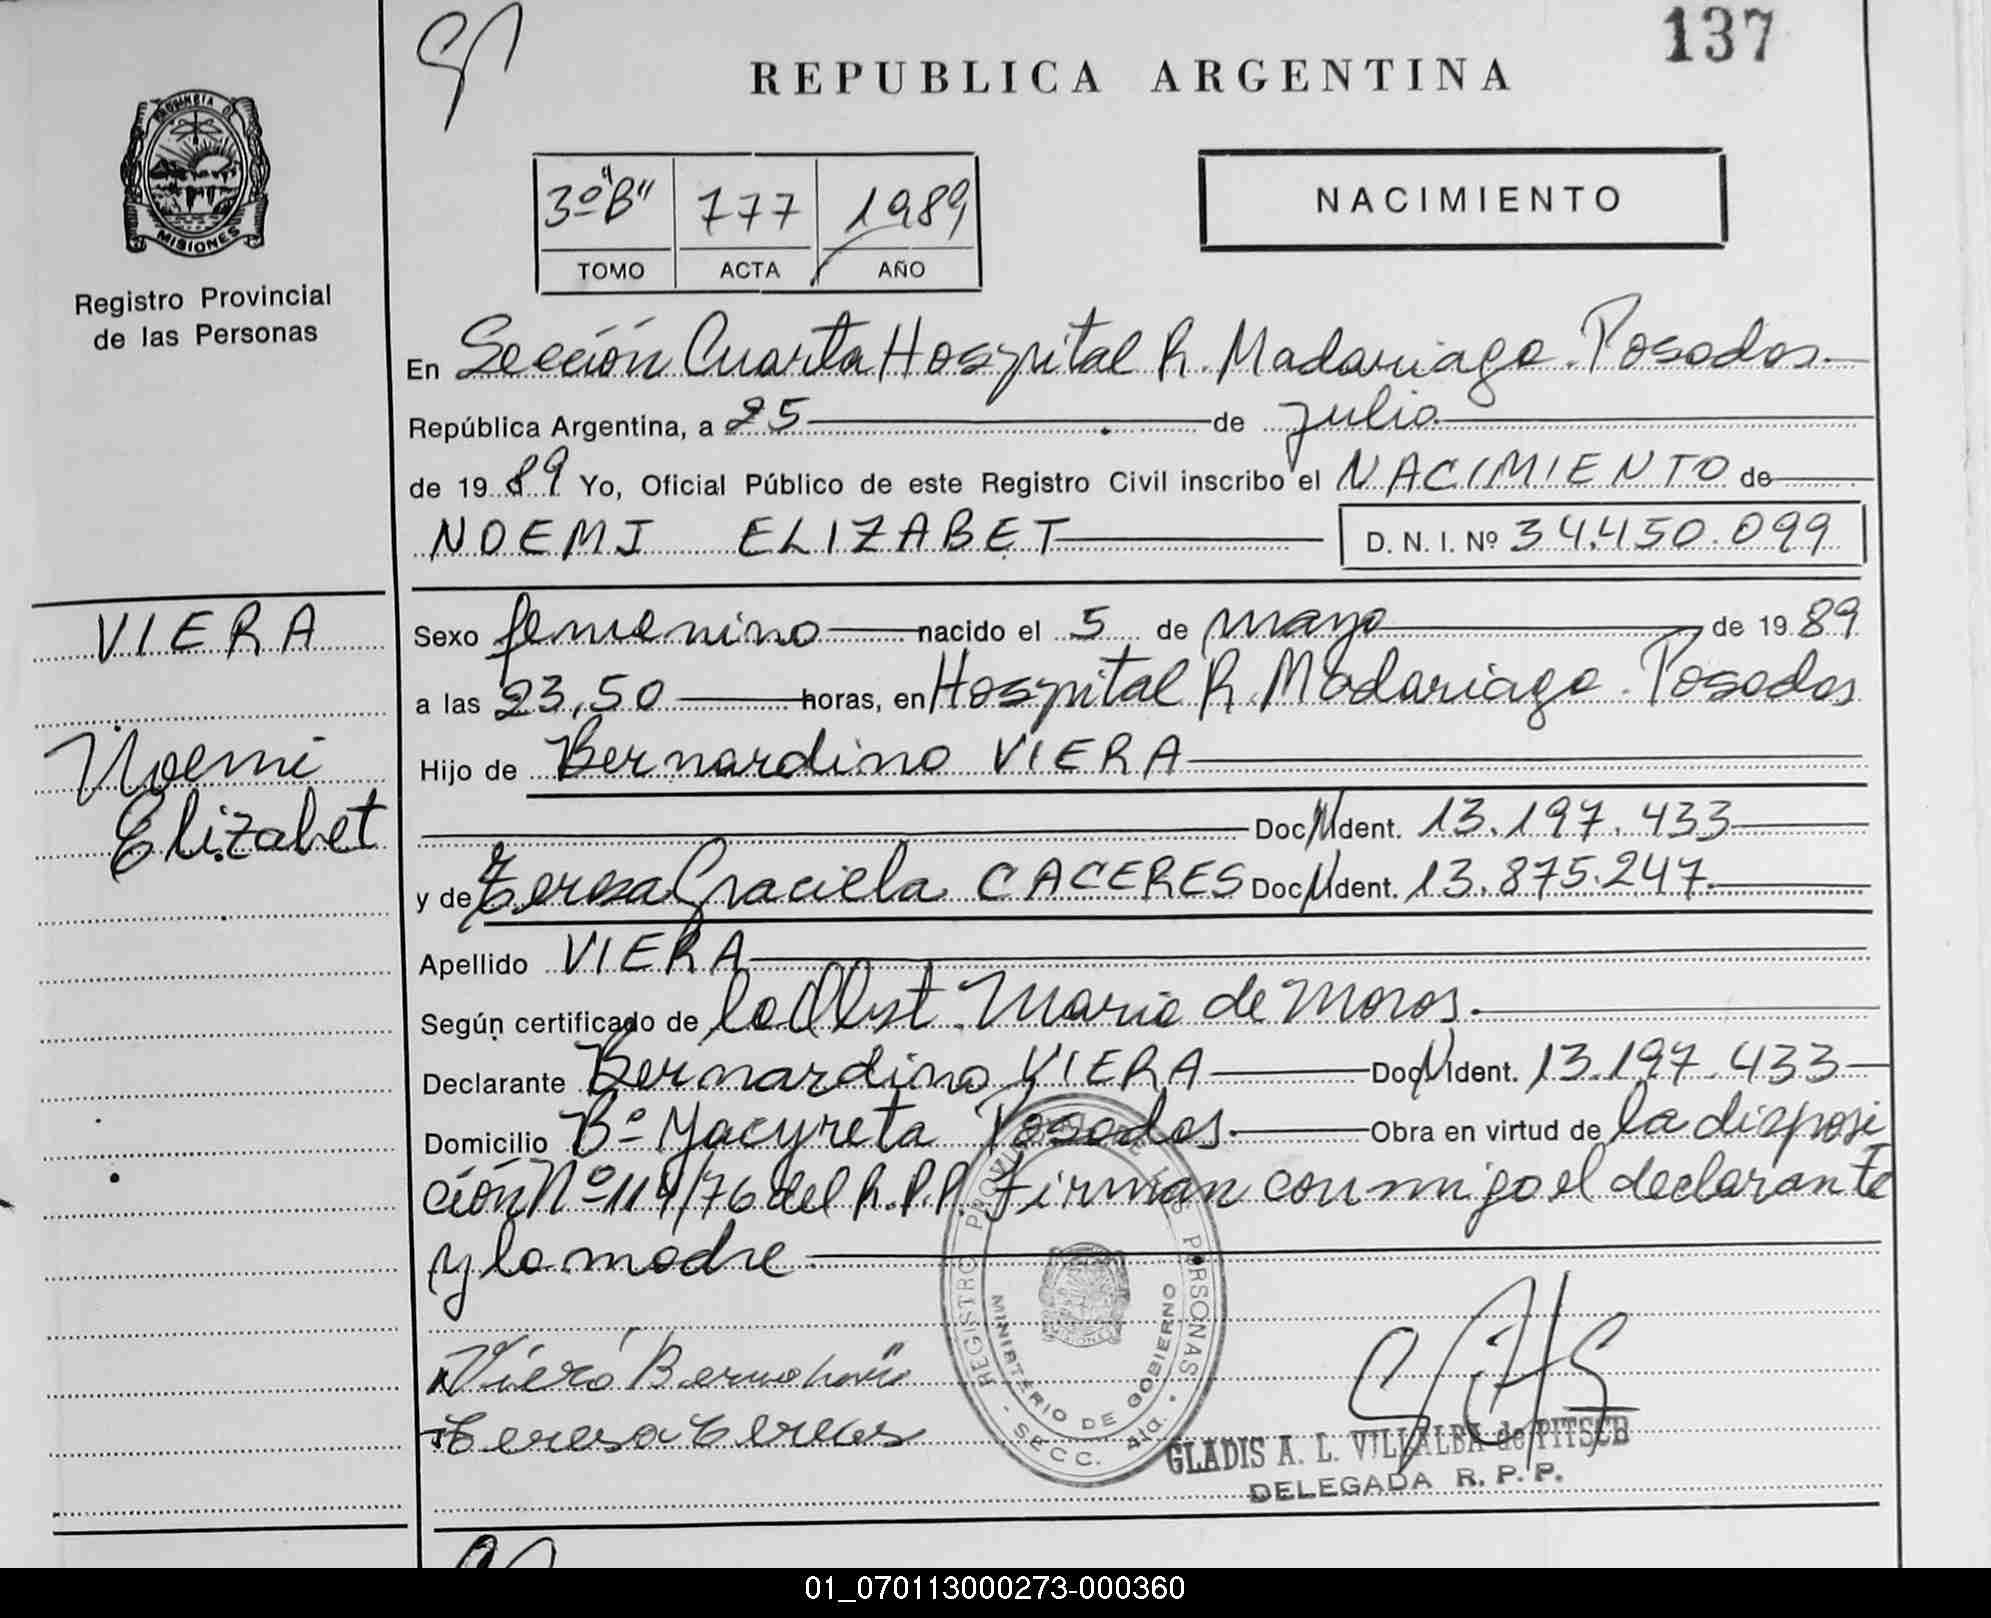 137
REPUBLICA ARGENTINA
PROVINCIA D
MISIONES
Registro Provincial
de las Personas
3º "B" 777 1989
TOMO ACTA AÑO
NACIMIENTO
En Sección Cuarta Hospital R. Madariaga. Posadas
República Argentina, a 25 de julio
de 1989 Yo, Oficial Público de este Registro Civil inscribo el NACIMIENTO de
NOEMI ELIZABET D. N. I. Nº 34.450.099
VIERA
Noemi
Elizabet
Sexo femenino nacido el 5 de mayo de 1989
a las 23,50 horas, en Hospital R. Madariaga. Posadas
Hijo de Bernardino VIERA
Doc. Ident. 13.197.433
y de Teresa Graciela CACERES Doc. Ident. 13.875.247
Apellido VIERA
Según certificado de la Obst. Maria de Moros.
Declarante Bernardino VIERA Doc. Ident. 13.197.433
Domicilio Bº Yacyreta Posadas. Obra en virtud de la disposi
ción Nº 114/76 del R.P.P. Firman conmigo el declarante
y la madre
Viera
Teresa
REGISTRO PROVINCIAL DE LAS PERSONAS
MINISTERIO DE GOBIERNO
SECC. 4ta.
GLADIS A. L. VILLALBA de PITSCH
DELEGADA R. P. P.
01_070113000273-000360